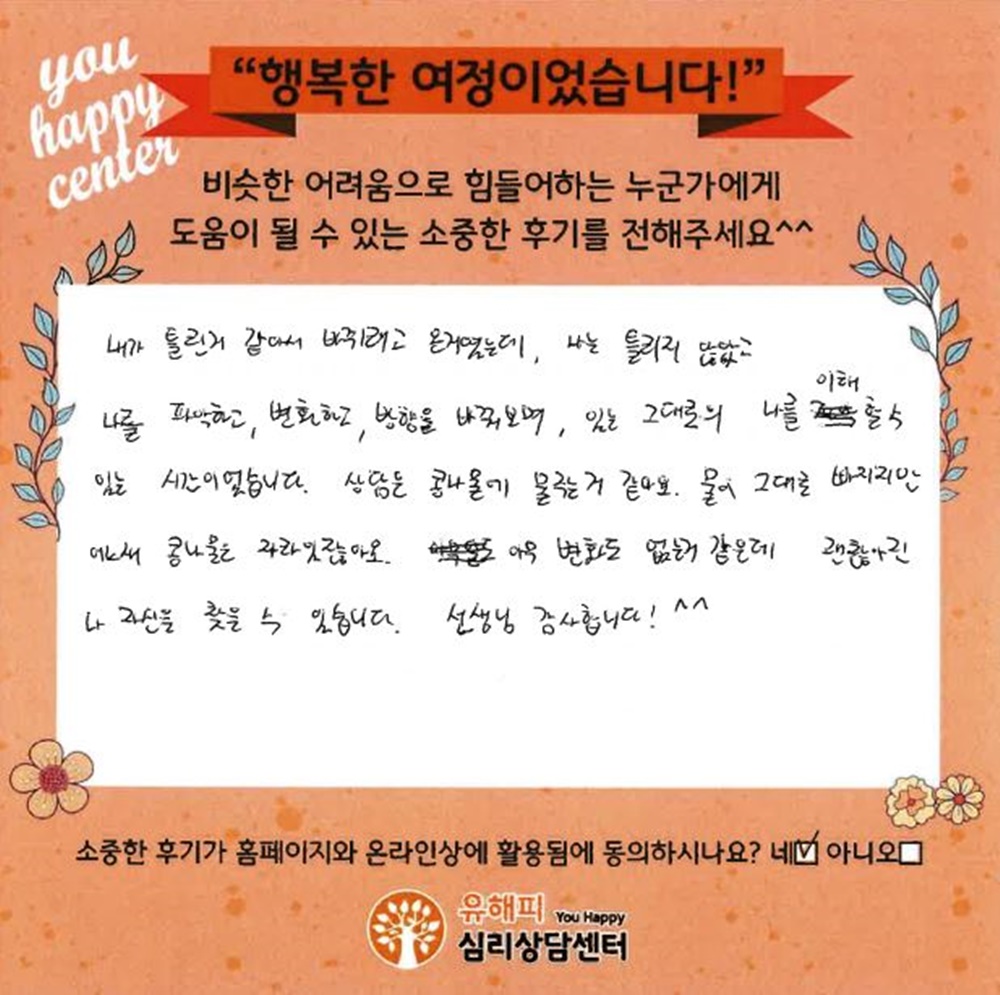 you
happy
center
“행복한 여정이었습니다!”
비슷한 어려움으로 힘들어하는 누군가에게
도움이 될 수 있는 소중한 후기를 전해주세요^^
내가 틀린거 같아서 바뀌려고 온거였는데, 나는 틀리지 않았고
이해
나를 파악하고, 변화하고, 방향을 바꿔보며, 있는 그대로의 나를 할 수
있는 시간이었습니다. 상담은 콩나물에 물주는거 같아요. 물이 그대로 빠지지만
어느새 콩나물은 자라있잖아요. 아무 변화도 없는거 같은데 괜찮아진
나 자신을 찾을 수 있습니다. 선생님 감사합니다! ^^
소중한 후기가 홈페이지와 온라인상에 활용됨에 동의하시나요? 네☑ 아니오☐
유해피 You Happy
심리상담센터